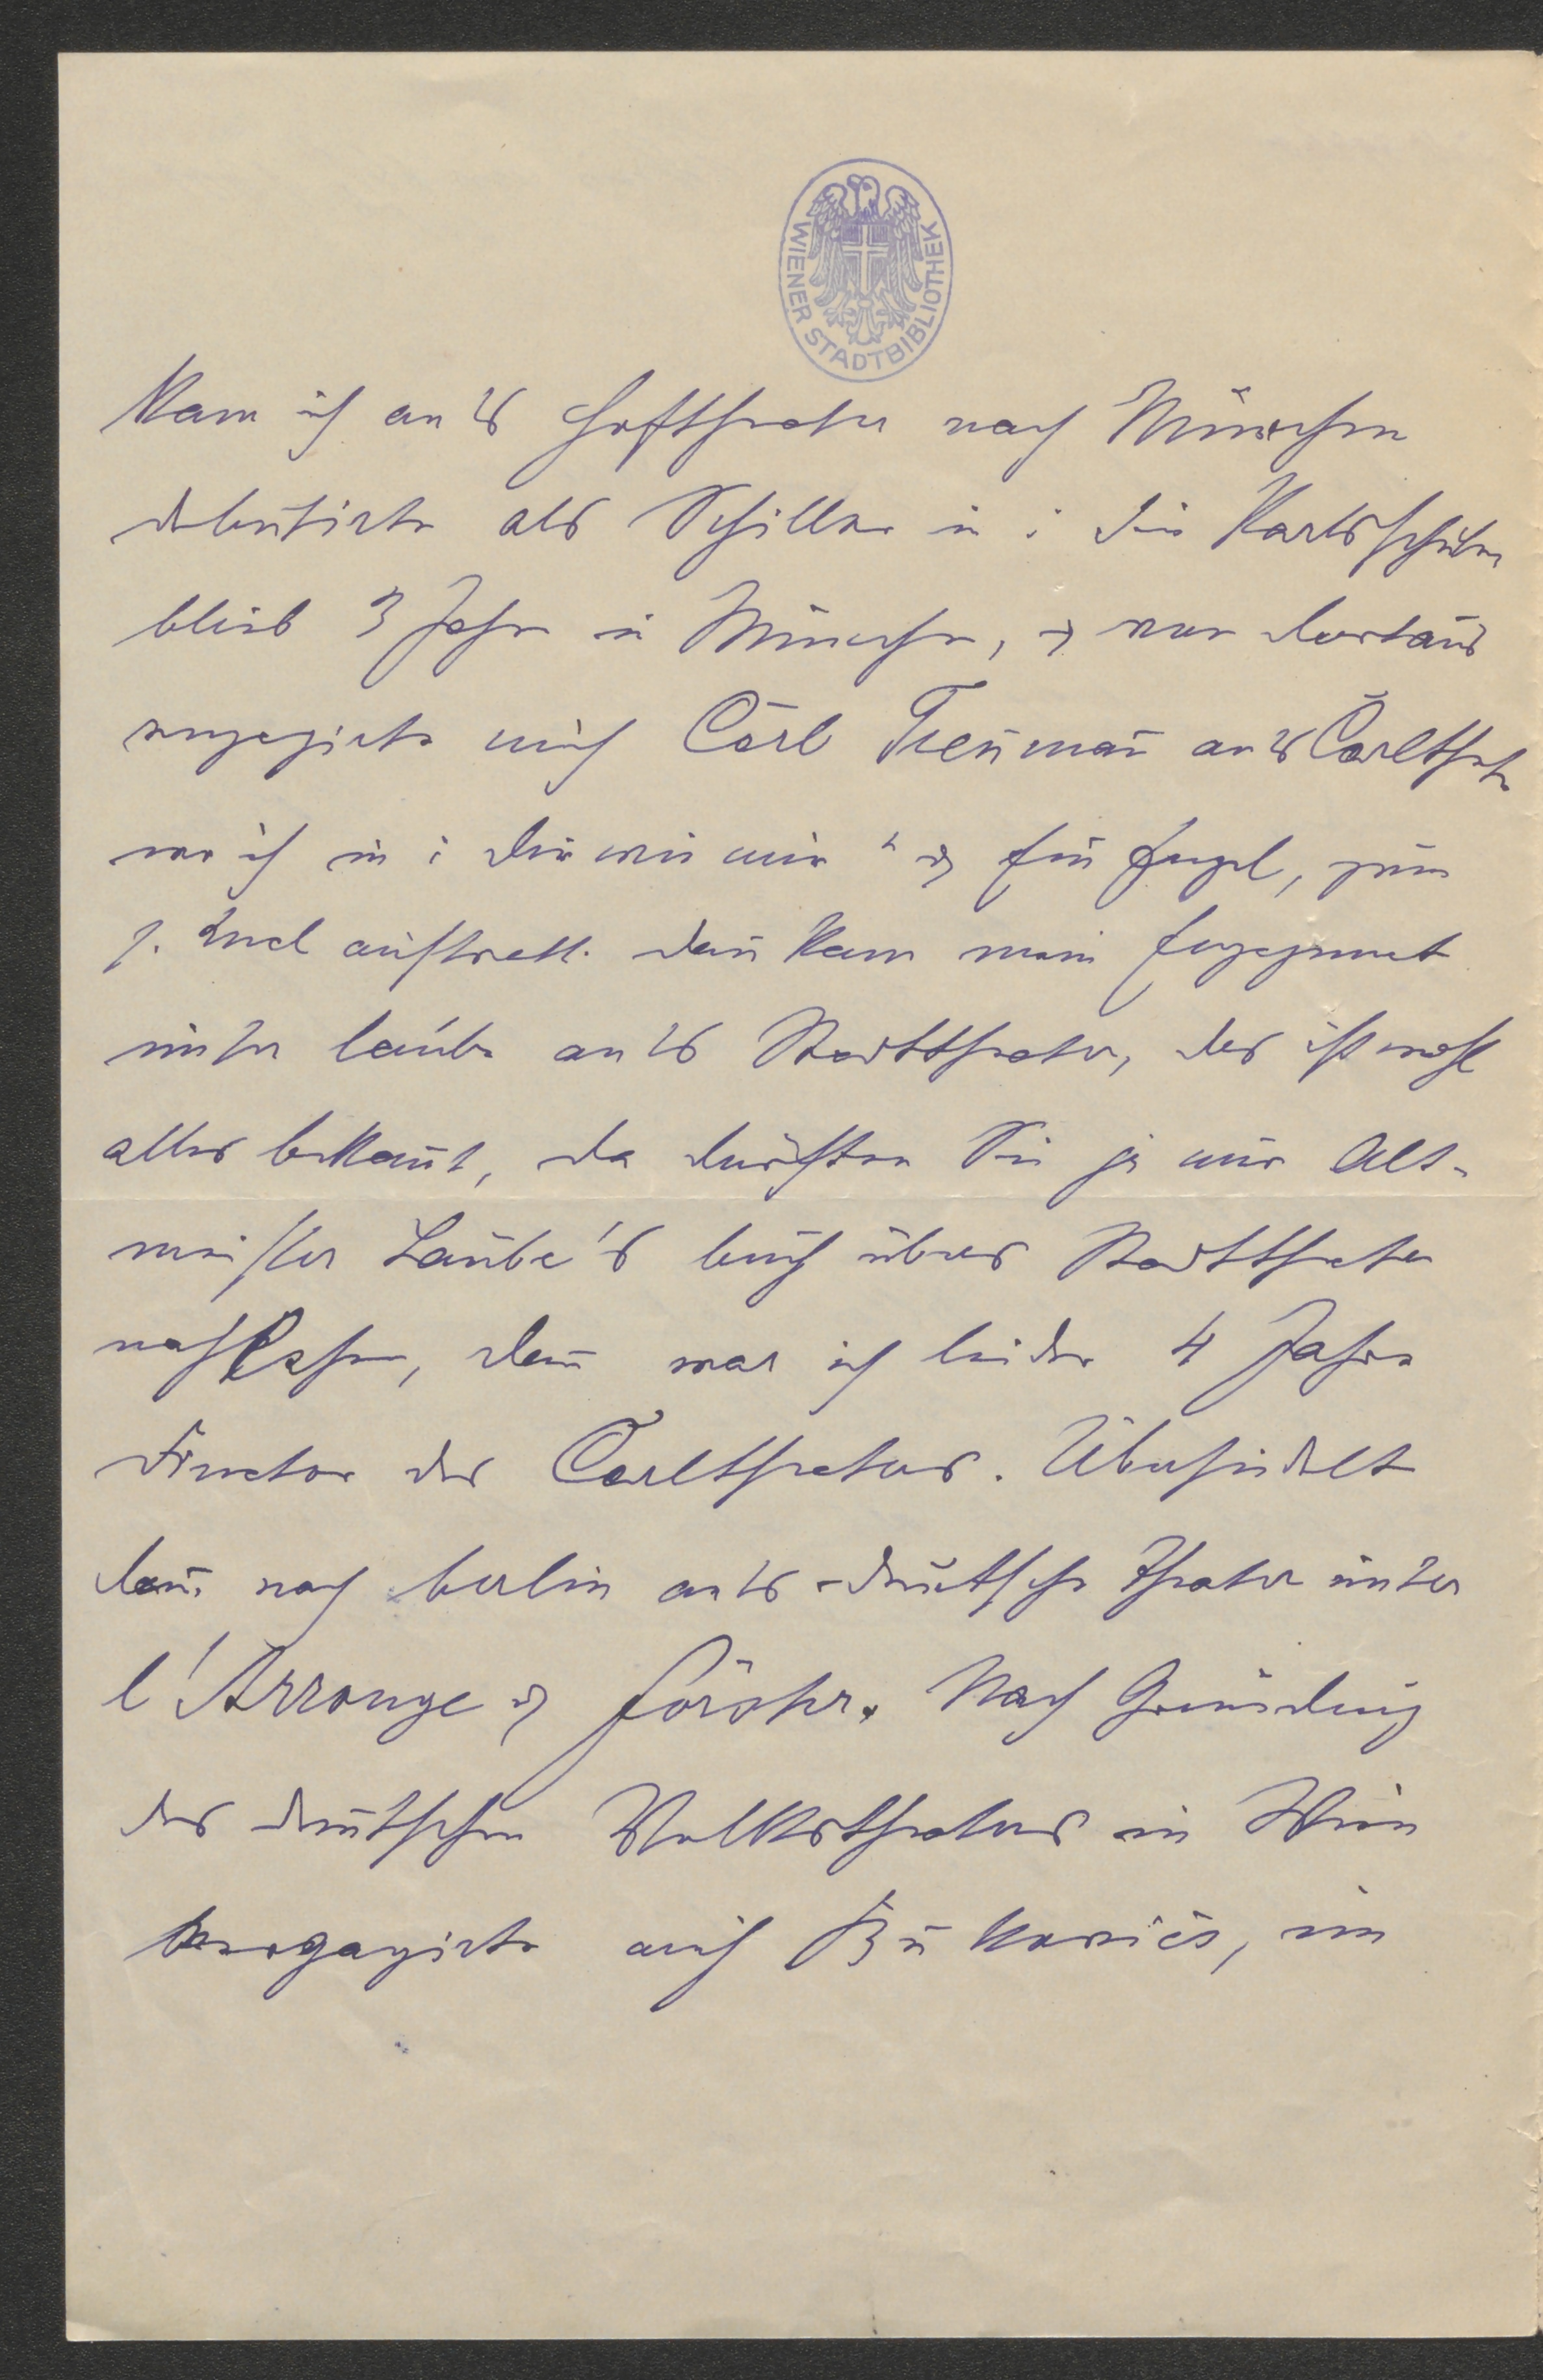 WIENER STADTBIBLIOTHEK
kam ich an's Hoftheater nach München
debutirte als Schiller in: die Karlsschüler
blieb 3 Jahre in München, & von dortaus
engagirte mich Carl Treumañ an's Carltheater
wo ich in: „Die wie mir" & Ein Engel, zum
1. Mal auftratt. Dañ kam mein Engagement
unter Laube an's Stadttheater, das ist wohl
alles bekañt, da dürften Sie ja nur Alt-
meister Laube's buch übers Stadttheater
nachlesen, dañ war ich leider 4 Jahre
Director des Carltheaters. Übersiedelte
dañ nach berlin an's deutsche Theater unter
l'Arronge & Förster. Nach Gründung
des deutschen Volkstheaters in Wien
engagirte mich Bukovics, im